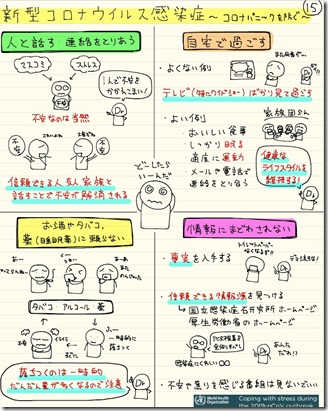 新型コロナウイルス感染症～コロナパニックを防ぐ～
15
人と話す 連絡をとりあう
マスコミ
ストレス
1人で不安を
かかえこまない!
不安なのは当然
不安
不安
信頼できる人、友人、家族と
話すことで不安が解消される
自宅で過ごす
・よくない例
テレビ(特にワイドショー)ばかり見て過ごす
・よい例
・おいしい食事
・しっかり眠る
・適度に運動
・メールや電話で
連絡をとり合う
家族団らん
健康な
ライフスタイルを
維持する!
どーしたら
いーんだ
お酒やタバコ、
薬に頼らない
タバコ・アルコール・薬
イライラ
一時的に
落ちつく
落ちつくのは一時的
だんだん量が多くなるので注意
情報にまどわされない
・事実を入手する
トイレットペーパー
なくなるぞ!!
・信頼できる情報源を見つける
→国立感染症研究所 ホームページ
厚生労働省のホームページ
あんた
だれ!?
・不安や焦りを感じる番組は見ないでいい
World Health
Organization
Coping with stress during
the 2019-nCoV outbreak